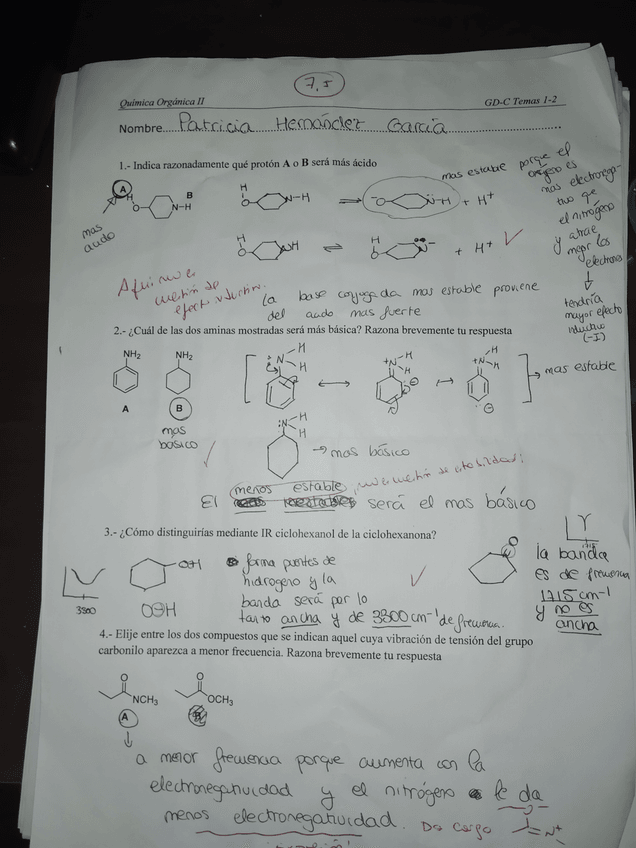 7,5
Química Orgánica II
GD-C Temas 1-2
Nombre Patricia Hernández García
1.- Indica razonadamente qué protón A o B será más ácido
A
B
H
O
N-H
mas
acido
H
O
N-H
-O
N-H + H+
H
O
NH
H
O
N
+ H+
mas estable porque el
oxígeno es
mas electronega-
tivo que
el nitrógeno
y atrae
mejor los
electrones
tendría
mayor efecto
inductivo
(-I)
Aquí no es
cuestión de
efecto inductivo.
la base conjugada mas estable proviene
del acido mas fuerte
2.- ¿Cuál de las dos aminas mostradas será más básica? Razona brevemente tu respuesta
NH2
NH2
A
B
mas
básico
N
H
H
+N
H
H
+N
H
H
mas estable
N
H
H
mas básico
menos estable
El será el mas básico
3.- ¿Cómo distinguirías mediante IR ciclohexanol de la ciclohexanona?
3300
OH
forma puentes de
hidrogeno y la
banda será por lo
tanto ancha y de 3300 cm-1 de frecuencia.
O
1715
la banda
es de frecuencia
1715 cm-1
y no es
ancha
4.- Elije entre los dos compuestos que se indican aquel cuya vibración de tensión del grupo
carbonilo aparezca a menor frecuencia. Razona brevemente tu respuesta
O
NCH3
A
O
OCH3
B
a menor frecuencia porque aumenta con la
electronegatividad y el nitrógeno le da
menos electronegatividad.